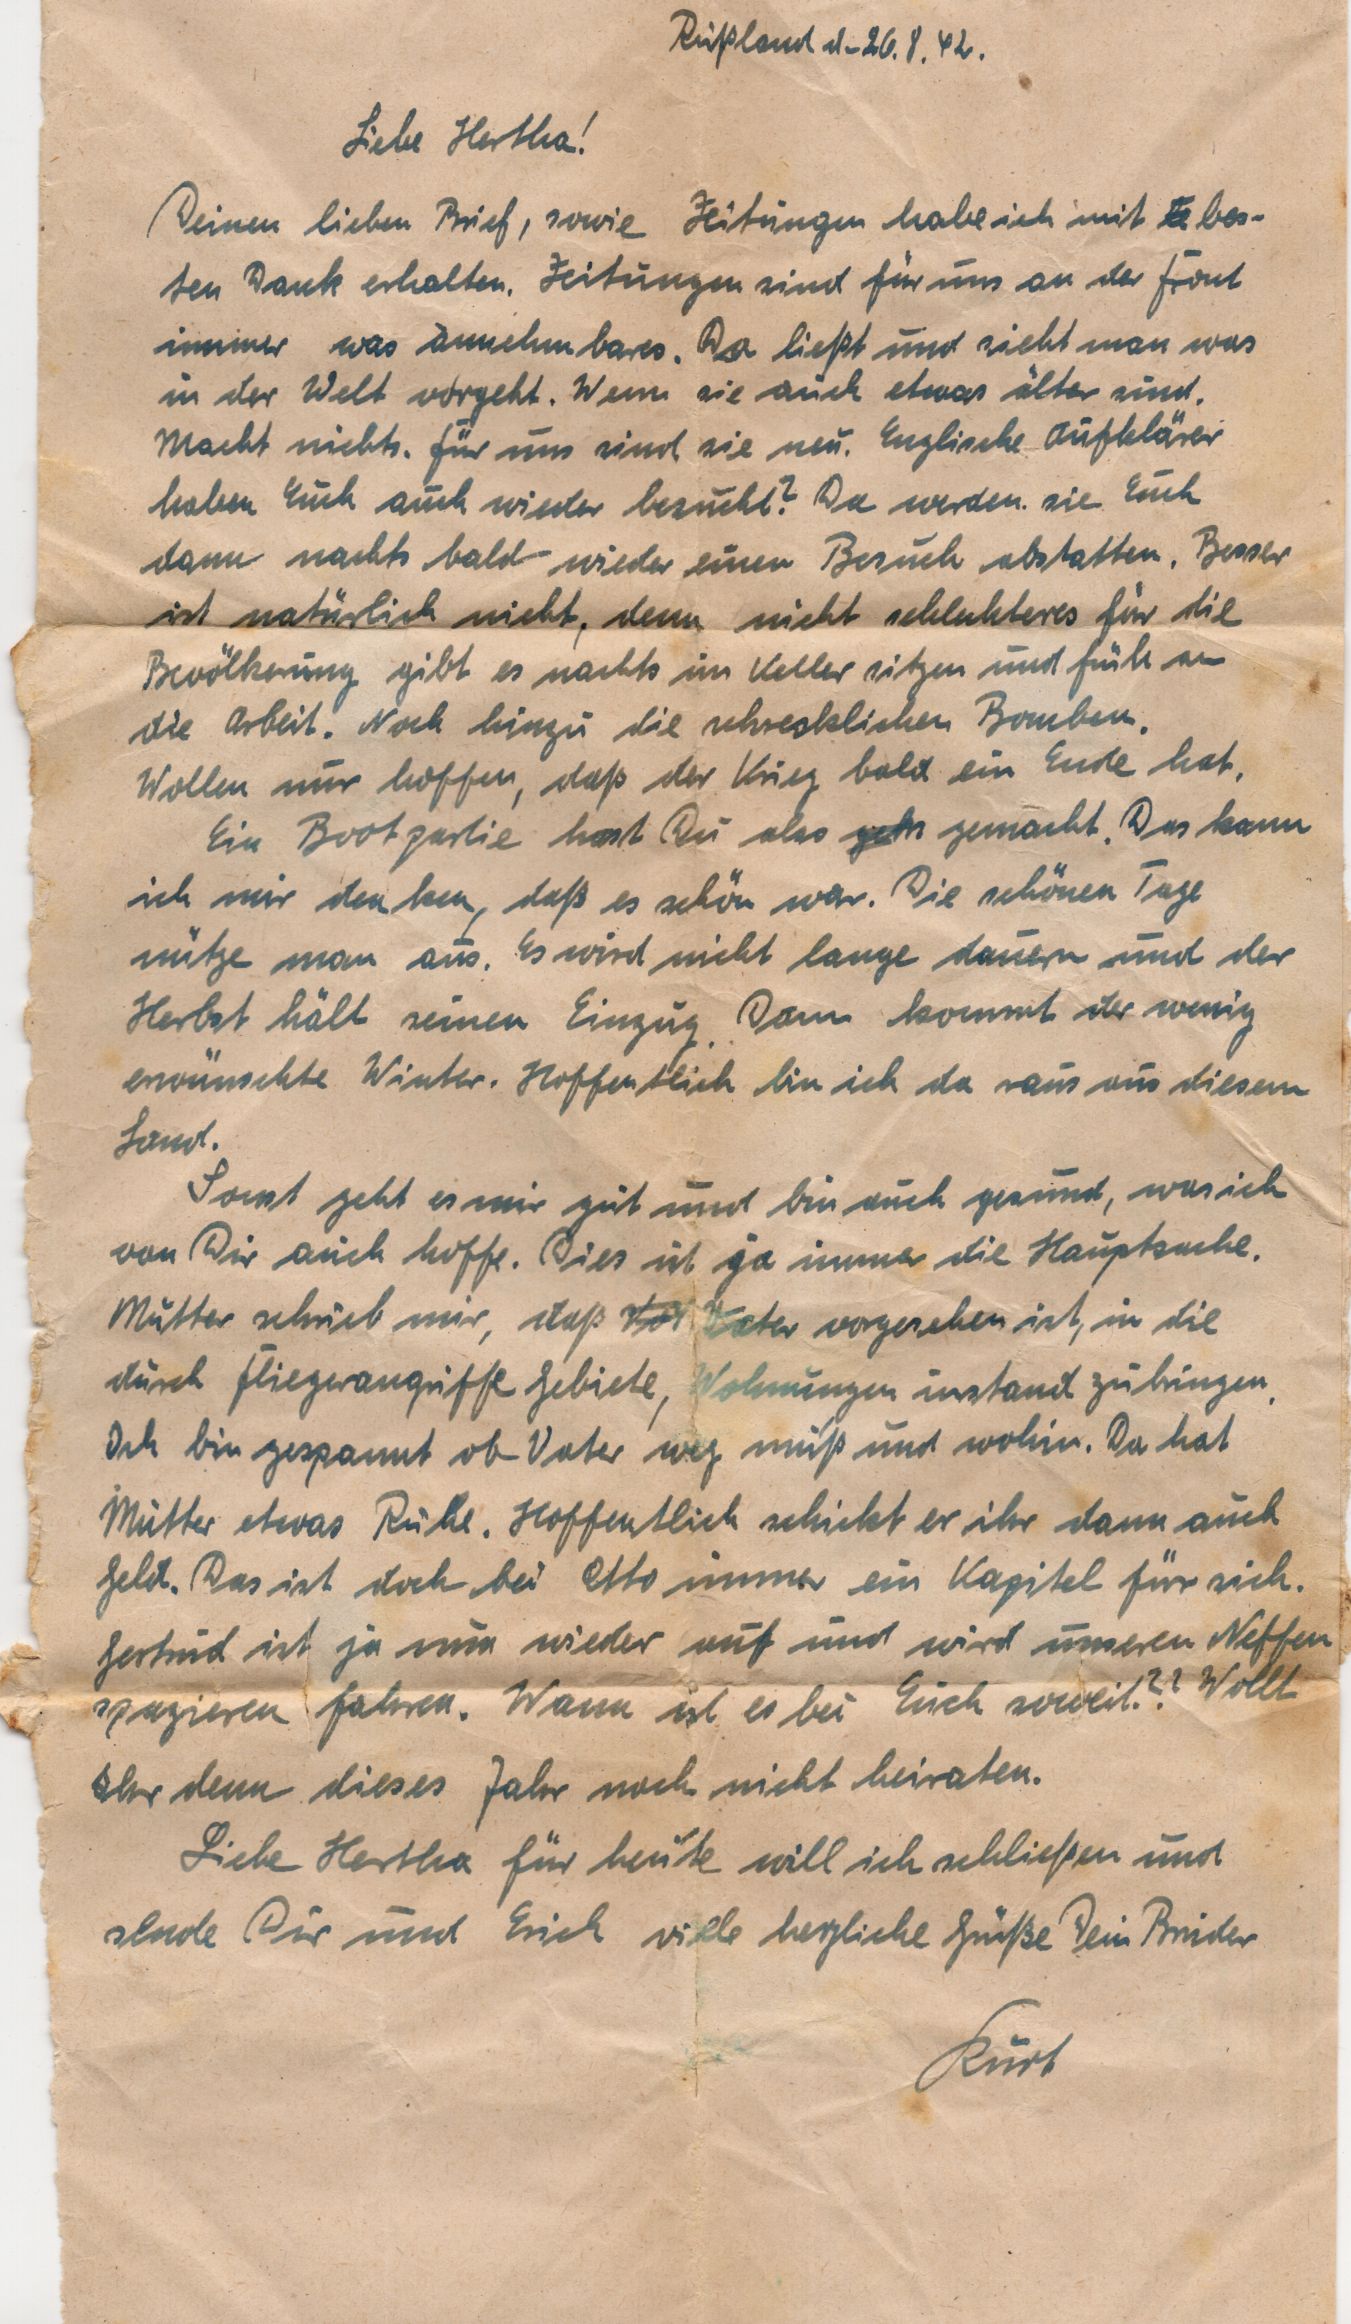 Rußland d. 26.8.42.
Liebe Hertha!
Deinen lieben Brief, sowie Zeitungen habe ich mit bes-
ten Dank erhalten. Zeitungen sind für uns an der Front
immer was annehmbares. Da ließt und sieht man was
in der Welt vorgeht. Wenn sie auch etwas älter sind.
Macht nichts. Für uns sind sie neu. Englische Aufklärer
haben Euch auch wieder besucht? Da werden sie Euch
dann nachts bald wieder einen Besuch abstatten. Besser
ist natürlich nicht, denn nicht schlechteres für die
Bevölkerung gibt es nachts im Keller sitzen und früh an
die Arbeit. Noch hinzu die schrecklichen Bomben.
Wollen nur hoffen, daß der Krieg bald ein Ende hat.
Ein Bootpartie hast Du also gemacht. Das kann
ich mir denken, daß es schön war. Die schönen Tage
nütze man aus. Es wird nicht lange dauern und der
Herbst hält seinen Einzug. Dann kommt der wenig
erwünschte Winter. Hoffentlich bin ich da raus aus diesem
Land.
Sonst geht es mir gut und bin auch gesund, was ich
von Dir auch hoffe. Dies ist ja immer die Hauptsache.
Mutter schrieb mir, daß Vater vorgesehen ist, in die
durch Fliegerangriffe Gebiete, Wohnungen instand zubringen.
Ich bin gespannt ob Vater weg muß und wohin. Da hat
Mutter etwas Ruhe. Hoffentlich schickt er ihr dann auch
Geld. Das ist doch bei Otto immer ein Kapitel für sich.
Gertrud ist ja nun wieder auf und wird unseren Neffen
spazieren fahren. Wann ist es bei Euch soweit?? Wollt
Ihr denn dieses Jahr noch nicht heiraten.
Liebe Hertha für heute will ich schließen und
sende Dir und Erich viele herzliche Grüße Dein Bruder
Kurt